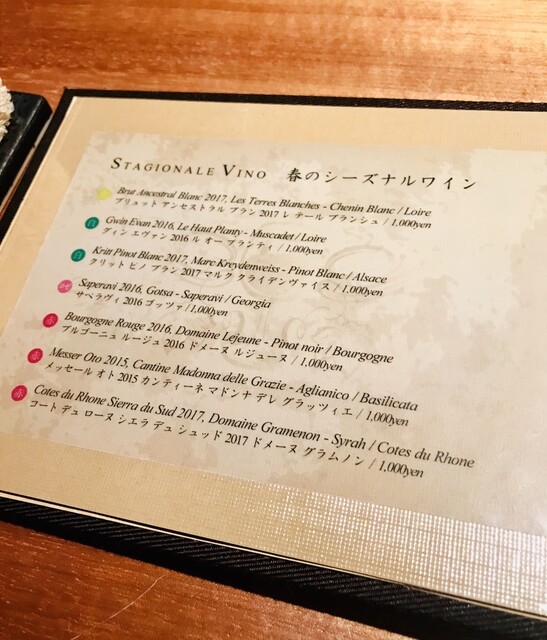 STAGIONALE VINO 春のシーズナルワイン
Brut Ancestral Blanc 2017, Les Terres Blanches - Chenin Blanc / Loire
ブリュット アンセストラル ブラン 2017 レ テール ブランシュ / 1,000yen
白 Gwin Evan 2016, Le Haut Planty - Muscadet / Loire
グィン エヴァン 2016 ル オー プランティ / 1,000yen
白 Kritt Pinot Blanc 2017, Marc Kreydenweiss - Pinot Blanc / Alsace
クリット ピノ ブラン 2017 マルク クライデンヴァイス / 1,000yen
ロゼ Saperavi 2016, Gotsa - Saperavi / Georgia
サペラヴィ 2016 ゴッツァ / 1,000yen
赤 Bourgogne Rouge 2016, Domaine Lejeune - Pinot noir / Bourgogne
ブルゴーニュ ルージュ 2016 ドメーヌ ルジューヌ / 1,000yen
赤 Messer Oto 2015, Cantine Madonna delle Grazie - Aglianico / Basilicata
メッセール オト 2015 カンティーネ マドンナ デレ グラッツィエ / 1,000yen
赤 Cotes du Rhone Sierra du Sud 2017, Domaine Gramenon - Syrah / Cotes du Rhone
コート デュ ローヌ シエラ デュ シュッド 2017 ドメーヌ グラムノン / 1,000yen